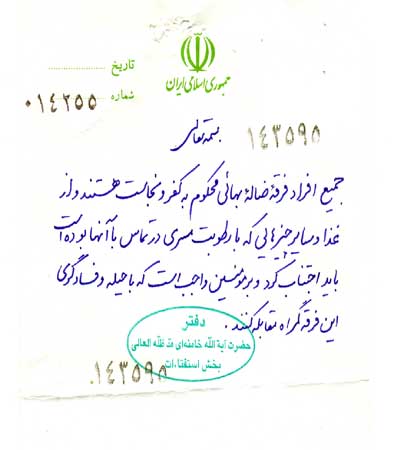 جمهوری اسلامی ایران
تاریخ ........................
شماره ۰۱۴۲۵۵
بسمه تعالی
۱۴۳۵۹۸
جمیع افراد فرقهٔ ضالهٔ بهائی محکوم به کفر و نجاست هستند و از
غذا و سایر چیزهایی که با رطوبت مسری در تماس با آنها بوده است
باید اجتناب کرد و بر مؤمنین واجب است که با حیله و فسادگری
این فرقه گمراه مقابله کنند.
دفتر
حضرت آیة الله خامنه‌ای مد ظله العالی
بخش استفتاءات
۱۴۳۵۹۸